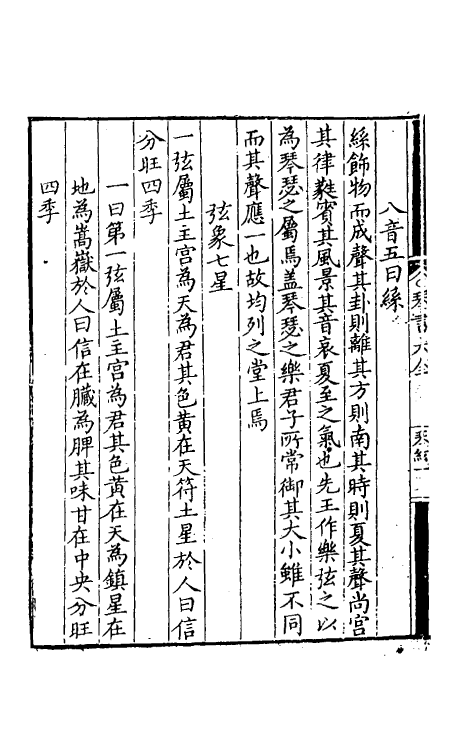 八音五曰絲
絲飾物而成聲其卦則離其方則南其時則夏其聲尚宮
其律蕤賓其風景其音哀夏至之氣也先王作樂弦之以
為琴瑟之屬焉盖琴瑟之樂君子所常御其大小雖不同
而其聲應一也故均列之堂上焉
弦象七星
一弦屬土主宮為天為君其色黃在天符土星於人曰信
分旺四季
一曰第一弦屬土主宮為君其色黃在天為鎮星在
地為嵩嶽於人曰信在臟為脾其味甘在中央分旺
四季